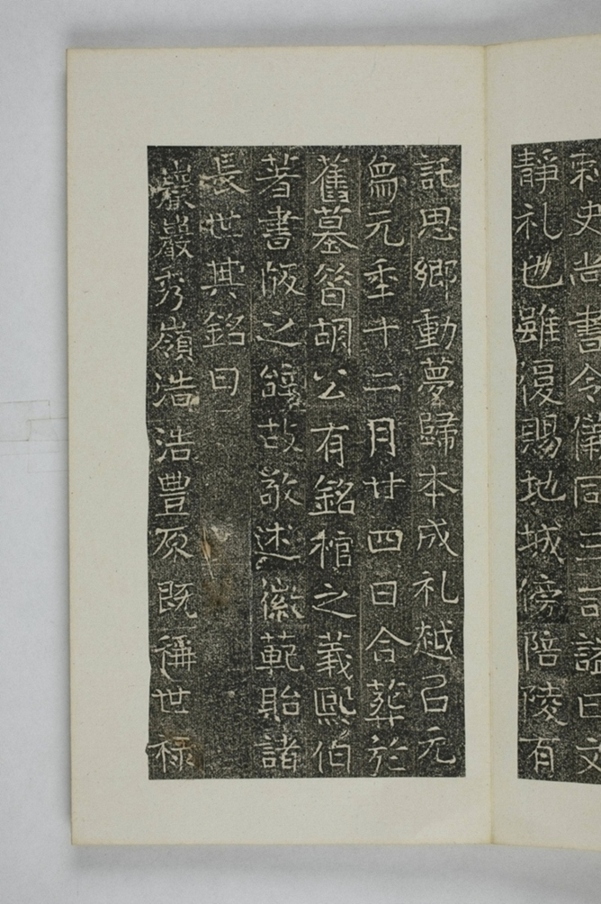 刺史尚書令儀同三司謚曰文
靜礼也雖復賜地城傍陪陵有
託思鄉動夢歸本成礼越㠯元
為元秊十二月廿四日合葬於
舊墓昝胡公有銘棺之義熙伯
著書版之故敬述徽範貽諸
長世其銘曰
巖巖秀嶺浩浩豊原既稱世禄